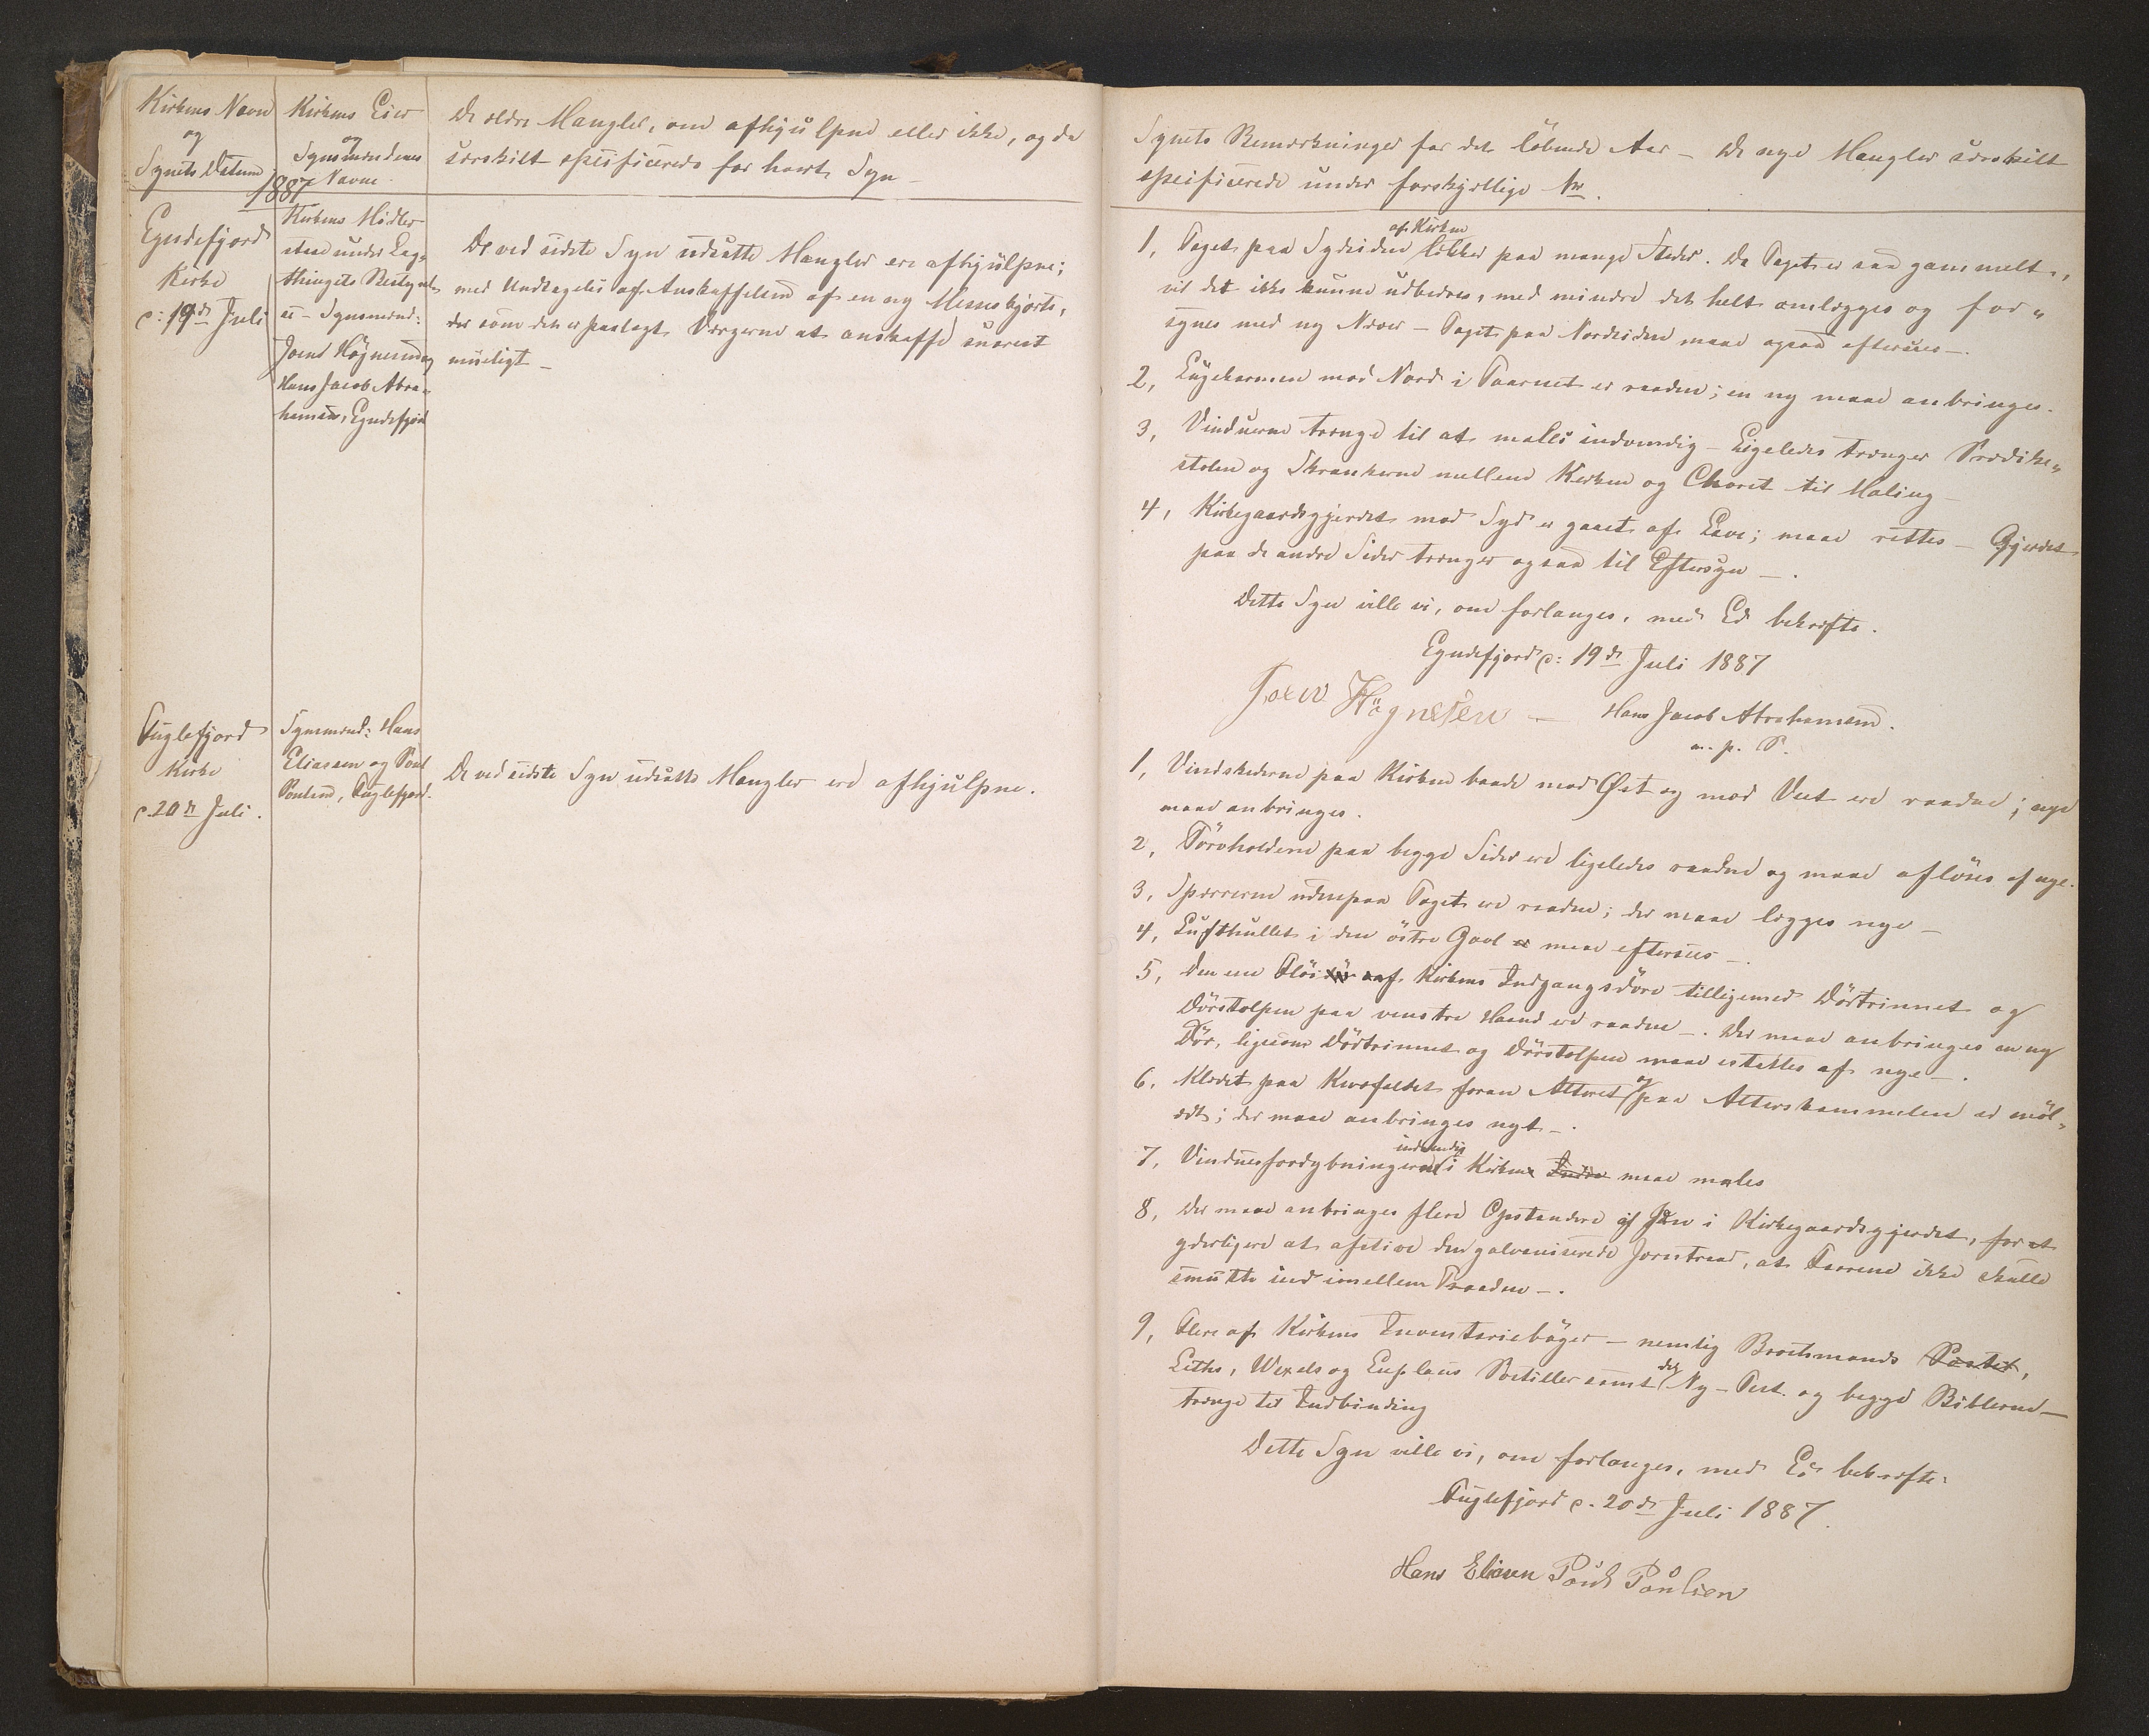 Kirkens Navn
og
Synets Datum
1887
Kirkens Eier
og
Synsmændenes
Navne.
De ældre Mangler, om afhjulpne eller ikke, og da
særskilt specificerede for hvert Syn —
Eyndefjord
Kirke
d: 19de Juli
Kirkens Midler
staae under Lag-
thingets Bestyrel-
se — Synsmænd:
Joen Högnesen og
Hans Jacob Abra-
hamsen, Eyndefjord
De ved sidste Syn udsatte Mangler ere afhjulpne;
med Undtagelse af Anskaffelsen af en ny Messeskjorte,
der som den er paalagt Værgerne at anskaffe snarest
mueligt —
Fuglefjord
Kirke
d. 20de Juli.
Synsmænd: Hans
Eliasen og Poul
Poulsen, Fuglefjord.
De ved sidste Syn udsatte Mangler ere afhjulpne.
Synets Bemærkninger for det löbende Aar — De nye Mangler særskilt
specificerede under forskjellige Nr.
1, Taget paa Sydsiden af Kirken lækker paa mange Steder. Da Taget er saa gammelt,
vil det ikke kunne udbedres, med mindre det helt omlægges og for-
synes med ny Næver — Taget paa Nordsiden maae ogsaa eftersees —.
2, Lugekarmen mod Nord i Taarnet er raaden; en ny maae anbringes.
3, Vinduerne trænge til at males indvendig — Ligeledes trænger Prædike-
stolen og Skrankerne mellem Kirken og Choret til Maling —
4, Kirkegaardsgjerdet mod Syd er gaaet af Lave; maae rettes — Gjerdet
paa de andre Sider trænger ogsaa til Eftersyn —.
Dette Syn ville vi, om forlanges, med Ed bekræfte.
Eyndefjord d: 19de Juli 1887
Joen Högnesen — Hans Jacob Abrahamsen.
m. p. P.
1, Vindskederne paa Kirken baade mod Øst og mod Vest ere raadne; nye
maae anbringes.
2, Törvholderne paa begge Sider ere ligeledes raadne og maae aflöses af nye.
3, Sparrerne udenpaa Taget ere raadne; der maae lægges nye —
4, Lufthullet i den östre Gavl er maae eftersees —.
5, Den ene Flöi af Kirkens Indgangsdöre tilligemed Dörtrinnet og
Dörstolpen paa venstre Haand ere raadne —. Der maae anbringes en ny
Dör, ligesom Dörtrinnet og Dörstolpen maae erstattes af nye —.
6, Klædet paa Knæfaldet foran Alteret og paa Alterskammelen er möl-
ædt; der maae anbringes nyt —.
7, Vinduesfordybningerne indvendig i Kirken Indre maae males
8, Der maae anbringes flere Opstandere af Jern i Kirkegaardsgjerdet, for at
yderligere at afstive den galvaniserede Jerntraad, at Faarene ikke skulle
smutte ind imellem Traadene —.
9, Flere af Kirkens Inventariebøger — nemlig Brochmands Postil,
Leths, Wexels og Postiller samt det Ny-Test. og begge Biblerne —
trænge til Indbinding
Dette Syn ville vi, om forlanges, med Ed bekræfte:
Fuglefjord d. 20de Juli 1887.
Hans Eliasen Poul Poulsen